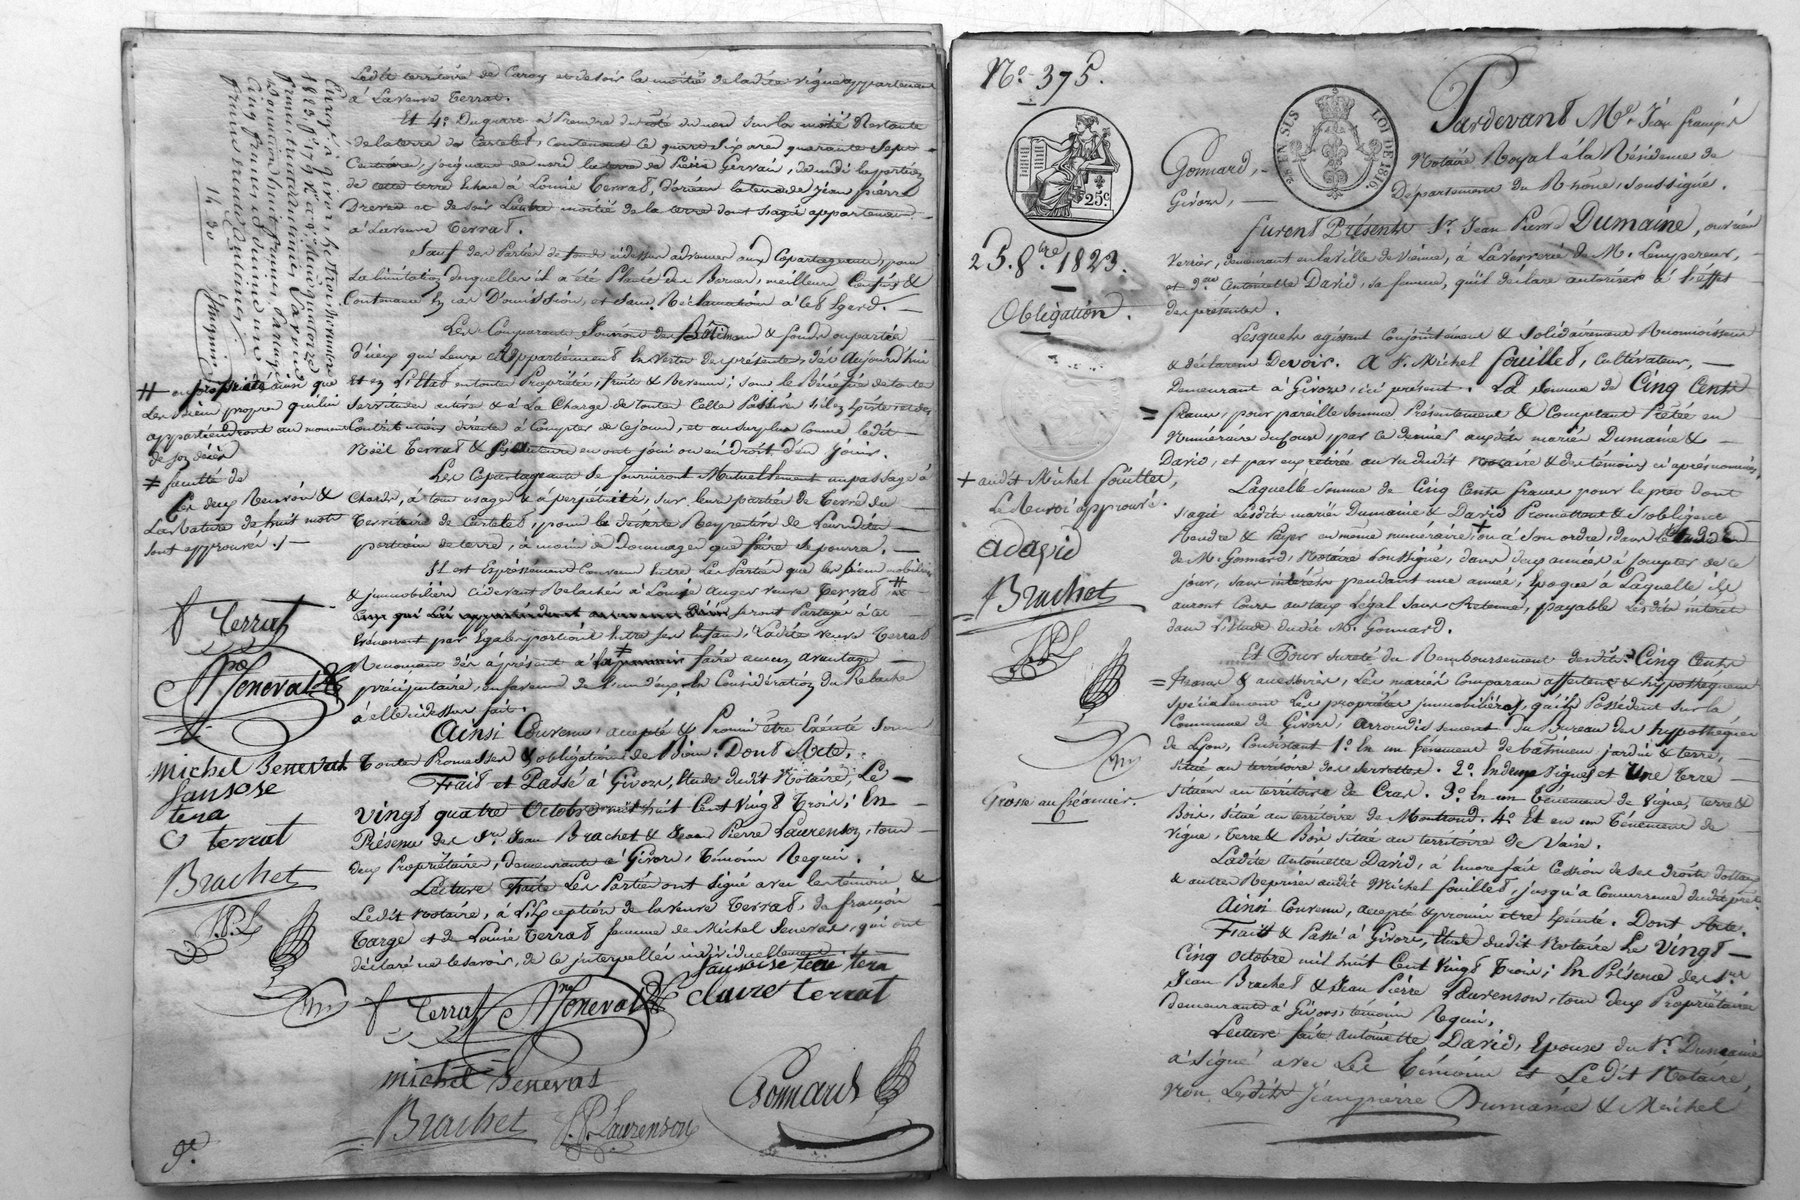 Ledit territoire de Cavoy et de soir la moitié de ladite vigne appartenant
à la veuve Terrat.
Et 4º Du quart à Prendre du côté du nord sur la moitié Restante
de la terre de Castelet, Contenant ce quart six ares quarante sept
Centiares, joignant de nord la terre de Pierre Gervais, de midi la portion
de cette terre échue à Louise Terrat, d'orient la terre de Jean pierre
Drevet et de soir l'autre moitié de la terre dont s'agit appartenant
à la veuve Terrat.
Sauf des Parties de fonds cidessus advenues aux Copartageants, pour
La limitation desquelles il a été Planté des Bornes, meilleurs Confins &
Contenance en cas D'omission, et sans Réclamation à ces Egard. —
Les Comparants Jouiront des Bâtiments & fonds ou parties
d'iceux qui leurs appartiennent En vertu des présentes, dès Aujourd'hui
et en l'Etat en toute Propriété, fruits & Revenus; sous le Bénéfice de toutes
servitudes actives & à la Charge de toutes Celles Passives s'il en Existe et des
Contributions directes à Compter de ce jour, et au surplus comme ledit
Noël Terrat & en ont joui ou eu Droit d'en Jouir.
Les Copartageants se fourniront Mutuellement un passage à
Chards, à tous usages & à perpétuité, sur leurs parties de Terre du
Territoire de Castelet, pour la déserte Respective de leursdites
portions de terre, à moins de Dommages que faire se pourra. —
Il est Expressément Convenu Entre Les Parties que les biens mobiliers
& immobiliers cidevant Relachés à Louise Auger veuve Terrat #
seront Partagés à cet
Evènement par Egales portions Entre ses Enfans, Ladite veuve Terrat
Renonçant dès àprésent à la faire aucun avantage
préciputaire, en faveur de l'un d'eux, En Considération du Relâche
à elle cidessus fait.
Ainsi Convenu, accepté & Promis être Exécuté sous
Toutes Promesses & obligations de Biens. Dont Acte.
Fait et Passé à Givors, Etude dudit Notaire, Le —
vingt quatre Octobre mil huit Cent vingt Trois; En
Présence des Srs. Jean Brachet & Jean Pierre Laurenson, tous
deux Propriétaires, demeurants à Givors, Témoins Requis.
Lecture Faite Les Parties ont Signé avec les témoins &
Ledit Notaire, à L'Exception de la veuve Terrat, de françois
Targe et de Louise Terrat femme de Michel Seneval, qui ont
déclaré ne le savoir, de ce interpellés individuellement
# ainsi que
Les Biens propres qu'elui
appartiendront au moment
de son décès
≠ faculté de
Les deux Renvois &
La Rature de huit mots
sont approuvés ./.
Terrat
Seneval
Michel Seneval
Terrat
Brachet
J.P.L
Terrat
Seneval
claire terrat
michel Senevas
Brachet
J.P. Laurenson
Gonnard
Nº 375.
25. 8bre. 1823.
Obligation.
25c.
28 EN SES
LOI DE 1816.
Pardevant Me. Jean françois
Gonnard, — Notaire Royal à la Résidence de
Givors, — Département du Rhône, soussigné.
furent Présents Sr. Jean Pierre Dumaine, ouvrier
verrier, demeurant en la ville de Vienne, à la Verrerie de M. Lempereur, —
et Dme Antoinette David, sa femme, qu'il déclare autoriser à l'effet
des présentes.
Lesquels agissant Conjointement & Solidairement Reconnoissent
& déclarent Devoir. A Sr. Michel fouillet, Cultivateur, —
demeurant à Givors, ici présent. La Somme de Cinq Cents
= francs, pour pareille somme Présentement & Comptant Prêtée en
Numéraire du Cours, par ce dernier auxdits mariés Dumaine & —
David, et par eux retirée au vu dudit Notaire & des témoins ci après nommés.
Laquelle somme de Cinq Cents francs pour le prêt dont
s'agit Lesdits mariés Dumaine & David Promettent & S'obligent
Rendre & Payer en même numéraire + ou à son ordre, dans
de M. Gonnard, Notaire soussigné, dans deux années à Compter de ce
jour, sans intérêts pendant une année, Epoque à Laquelle ils
auront Cours au taux Légal sans Retenue, payable Lesdits intérêt
dans l'Etude dudit M. Gonnard.
Et Pour sureté du Remboursement desdits Cinq Cents
= francs & accessoires, Les mariés Comparans affectent & hypothèquent
spécialement Les propriétés immobilières, qu'ils Possèdent sur la
Commune de Givors, arrondissement Du Bureau des hypothèques
de Lyon, Consistant 1º. En un Tènement de bâtimens jardin & terre, —
situé au territoire des Servettes. 2º. En deux Vignes et Une terre —
situées au territoire de Cras. 3º. En un Tènement de Vigne, terre &
Bois, situé au territoire de Montrond. 4º. Et en un Tènement de
Vigne, Terre & Bois situé au territoire de Vaise.
Ladite Antoinette David, à Encore fait Cession de ses droits dotaux
& autres Reprises audit Michel fouillet, jusqu'à Concurrence dudit prêt
Ainsi Convenu, accepté & promis être Exécuté. Dont Acte.
Fait & Passé à Givors, Etude dudit Notaire Le Vingt —
Cinq octobre mil huit Cent Vingt Trois; En Présence des Srs.
Jean Brachet & Jean Pierre Laurenson, tous deux Propriétaires
demeurants à Givors, témoins Requis.
Lecture faite Antoinette David, Epouse du Sr. Dumaine
à Signé avec Les Témoins et Ledit Notaire,
Non Lesdits Jean pierre Dumaine & Michel
+ audit Michel fouillet,
Le Renvoi approuvé.
adavid
Brachet
J.P.L
Grosse au Créancier.